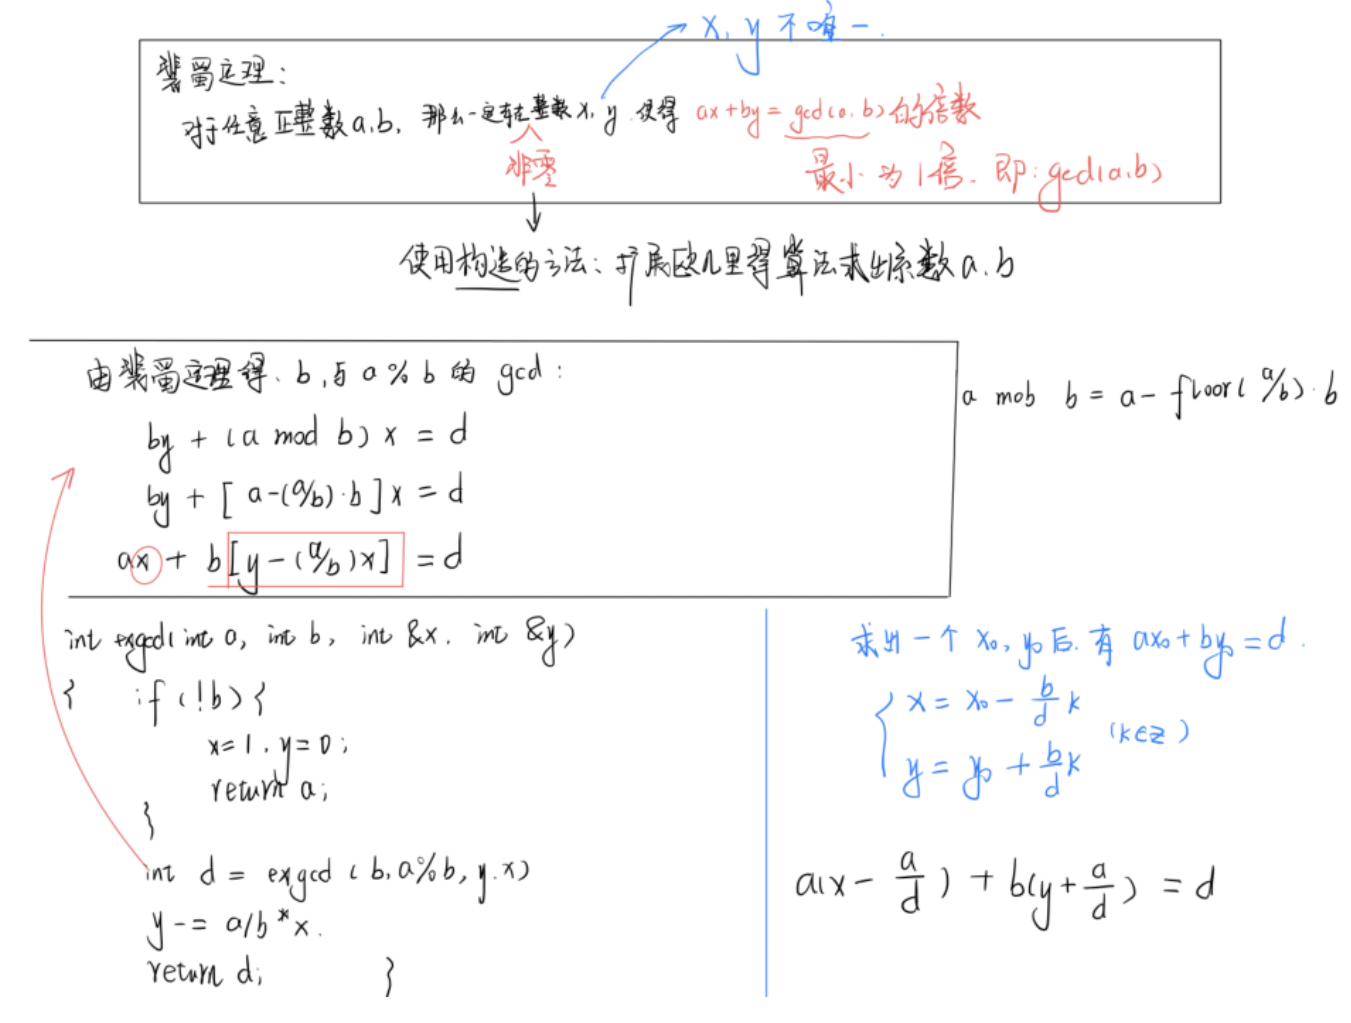 x, y 不唯一.
裴蜀定理:
对于任意正整数a.b, 那么一定存在整数x, y 使得 ax+by = gcd(a, b)的倍数
非零
最小为1倍. 即: gcd(a.b)
使用构造的方法: 扩展欧几里得算法求出系数a.b
由裴蜀定理得. b, 与 a % b 的 gcd:
by + (a mod b) x = d
by + [a-(a/b)·b]x = d
ax + b[y-(a/b)x] = d
a mob b = a - floor(a/b)·b
int exgcd(int a, int b, int &x, int &y)
{ if (!b) {
x=1, y=0;
return a;
}
int d = exgcd (b, a%b, y.x)
y -= a/b*x.
return d; }
求出一个 x₀, y₀后. 有 ax₀+by₀=d.
{ x = x₀ - b/d k
y = y₀ + b/d k
(k∈Z)
a(x - a/d) + b(y + a/d) = d